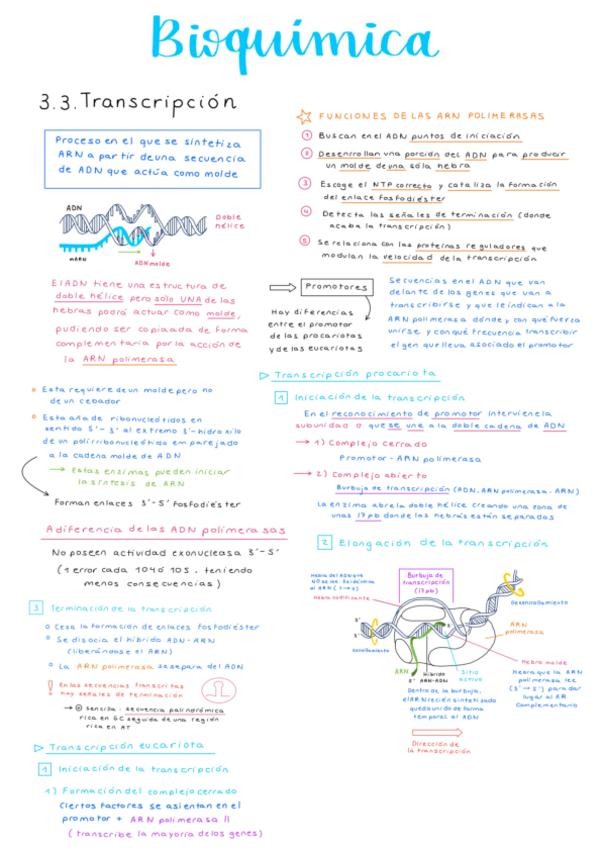 Bioquímica
3.3. Transcripción
Proceso en el que se sintetiza
ARN a partir de una secuencia
de ADN que actúa como molde
ADN
Doble
hélice
mARN
ADN molde
El ADN tiene una estructura de
doble hélice pero solo UNA de las
hebras podrá actuar como molde,
pudiendo ser copiaada de forma
complementaria por la acción de
la ARN polimerasa
Esta requiere de un molde pero no
de un cebador
Esta añade ribonucleótidos en
sentido 5'-3' al extremo 3'-hidroxilo
de un polirribonucleótido emparejado
a la cadena molde de ADN
→ Estas enzimas pueden iniciar
la síntesis de ARN
Forman enlaces 3'-5' fosfodiéster
A diferencia de las ADN polimerasas
No poseen actividad exonucleasa 3'-5'
(1 error cada 104 ó 105, teniendo
menos consecuencias)
3 Terminación de la transcripción
Cesa la formación de enlaces fosfodiéster
Se disocia el híbrido ADN-ARN
(liberándose el ARN)
La ARN polimerasa se separa del ADN
! En las secuencias transcritas
hay señales de terminación
sencilla: secuencia palindrómica
rica en GC seguida de una región
rica en AT
Transcripción eucariota
1 Iniciación de la transcripción
1) Formación del complejo cerrado
Ciertos factores se asientan en el
promotor + ARN polimerasa II
(transcribe la mayoría de los genes)
FUNCIONES DE LAS ARN POLIMERASAS
1 Buscan en el ADN puntos de iniciación
2 Desenrollan una porción del ADN para producir
un molde de una sola hebra
3 Escoge el NTP correcto y cataliza la formación
del enlace fosfodiéster
4 Detecta las señales de terminación (donde
acaba la transcripción)
5 Se relaciona con las proteínas reguladores que
modulan la velocidad de la transcripción
Promotores
Hay diferencias
entre el promotor
de las procariotas
y de las eucariotas
Secuencias en el ADN que van
delante de los genes que van a
transcribirse y que le indican a la
ARN polimerasa dónde y con qué fuerza
unirse y con qué frecuencia transcribir
el gen que lleva asociado el promotor
Transcripción procariota
1 Iniciación de la transcripción
En el reconocimiento de promotor interviene la
subunidad σ que se une a la doble cadena de ADN
→ 1) Complejo cerrado
Promotor - ARN polimerasa
→ 2) Complejo abierto
Burbuja de transcripción (ADN, ARN polimerasa, ARN)
La enzima abre la doble hélice creando una zona de
unas 17 pb donde las hebras están separadas
2 Elongación de la transcripción
Hebra del ADN que
NO se lee.
Hebra codificante
Burbuja de
transcripción
(17pb)
Desenrollamiento
ARN
polimerasa
Enrollamiento
ARN
5'
Híbrido
ARN-ADN
Sitio
activo
Hebra molde
Hebra que la ARN
polimerasa lee
(3' → 5') para dar
lugar al ARN
Complementario
Dentro de la burbuja,
el ARN recién sintetizado
queda unido de forma
temporal al ADN
Dirección de
la transcripción